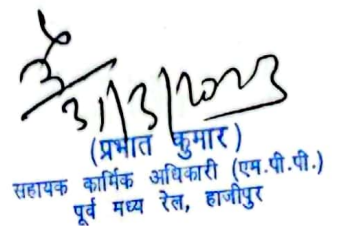 31/3/2023
(प्रभात कुमार)
सहायक कार्मिक अधिकारी (एम.पी.पी.)
पूर्व मध्य रेल, हाजीपुर